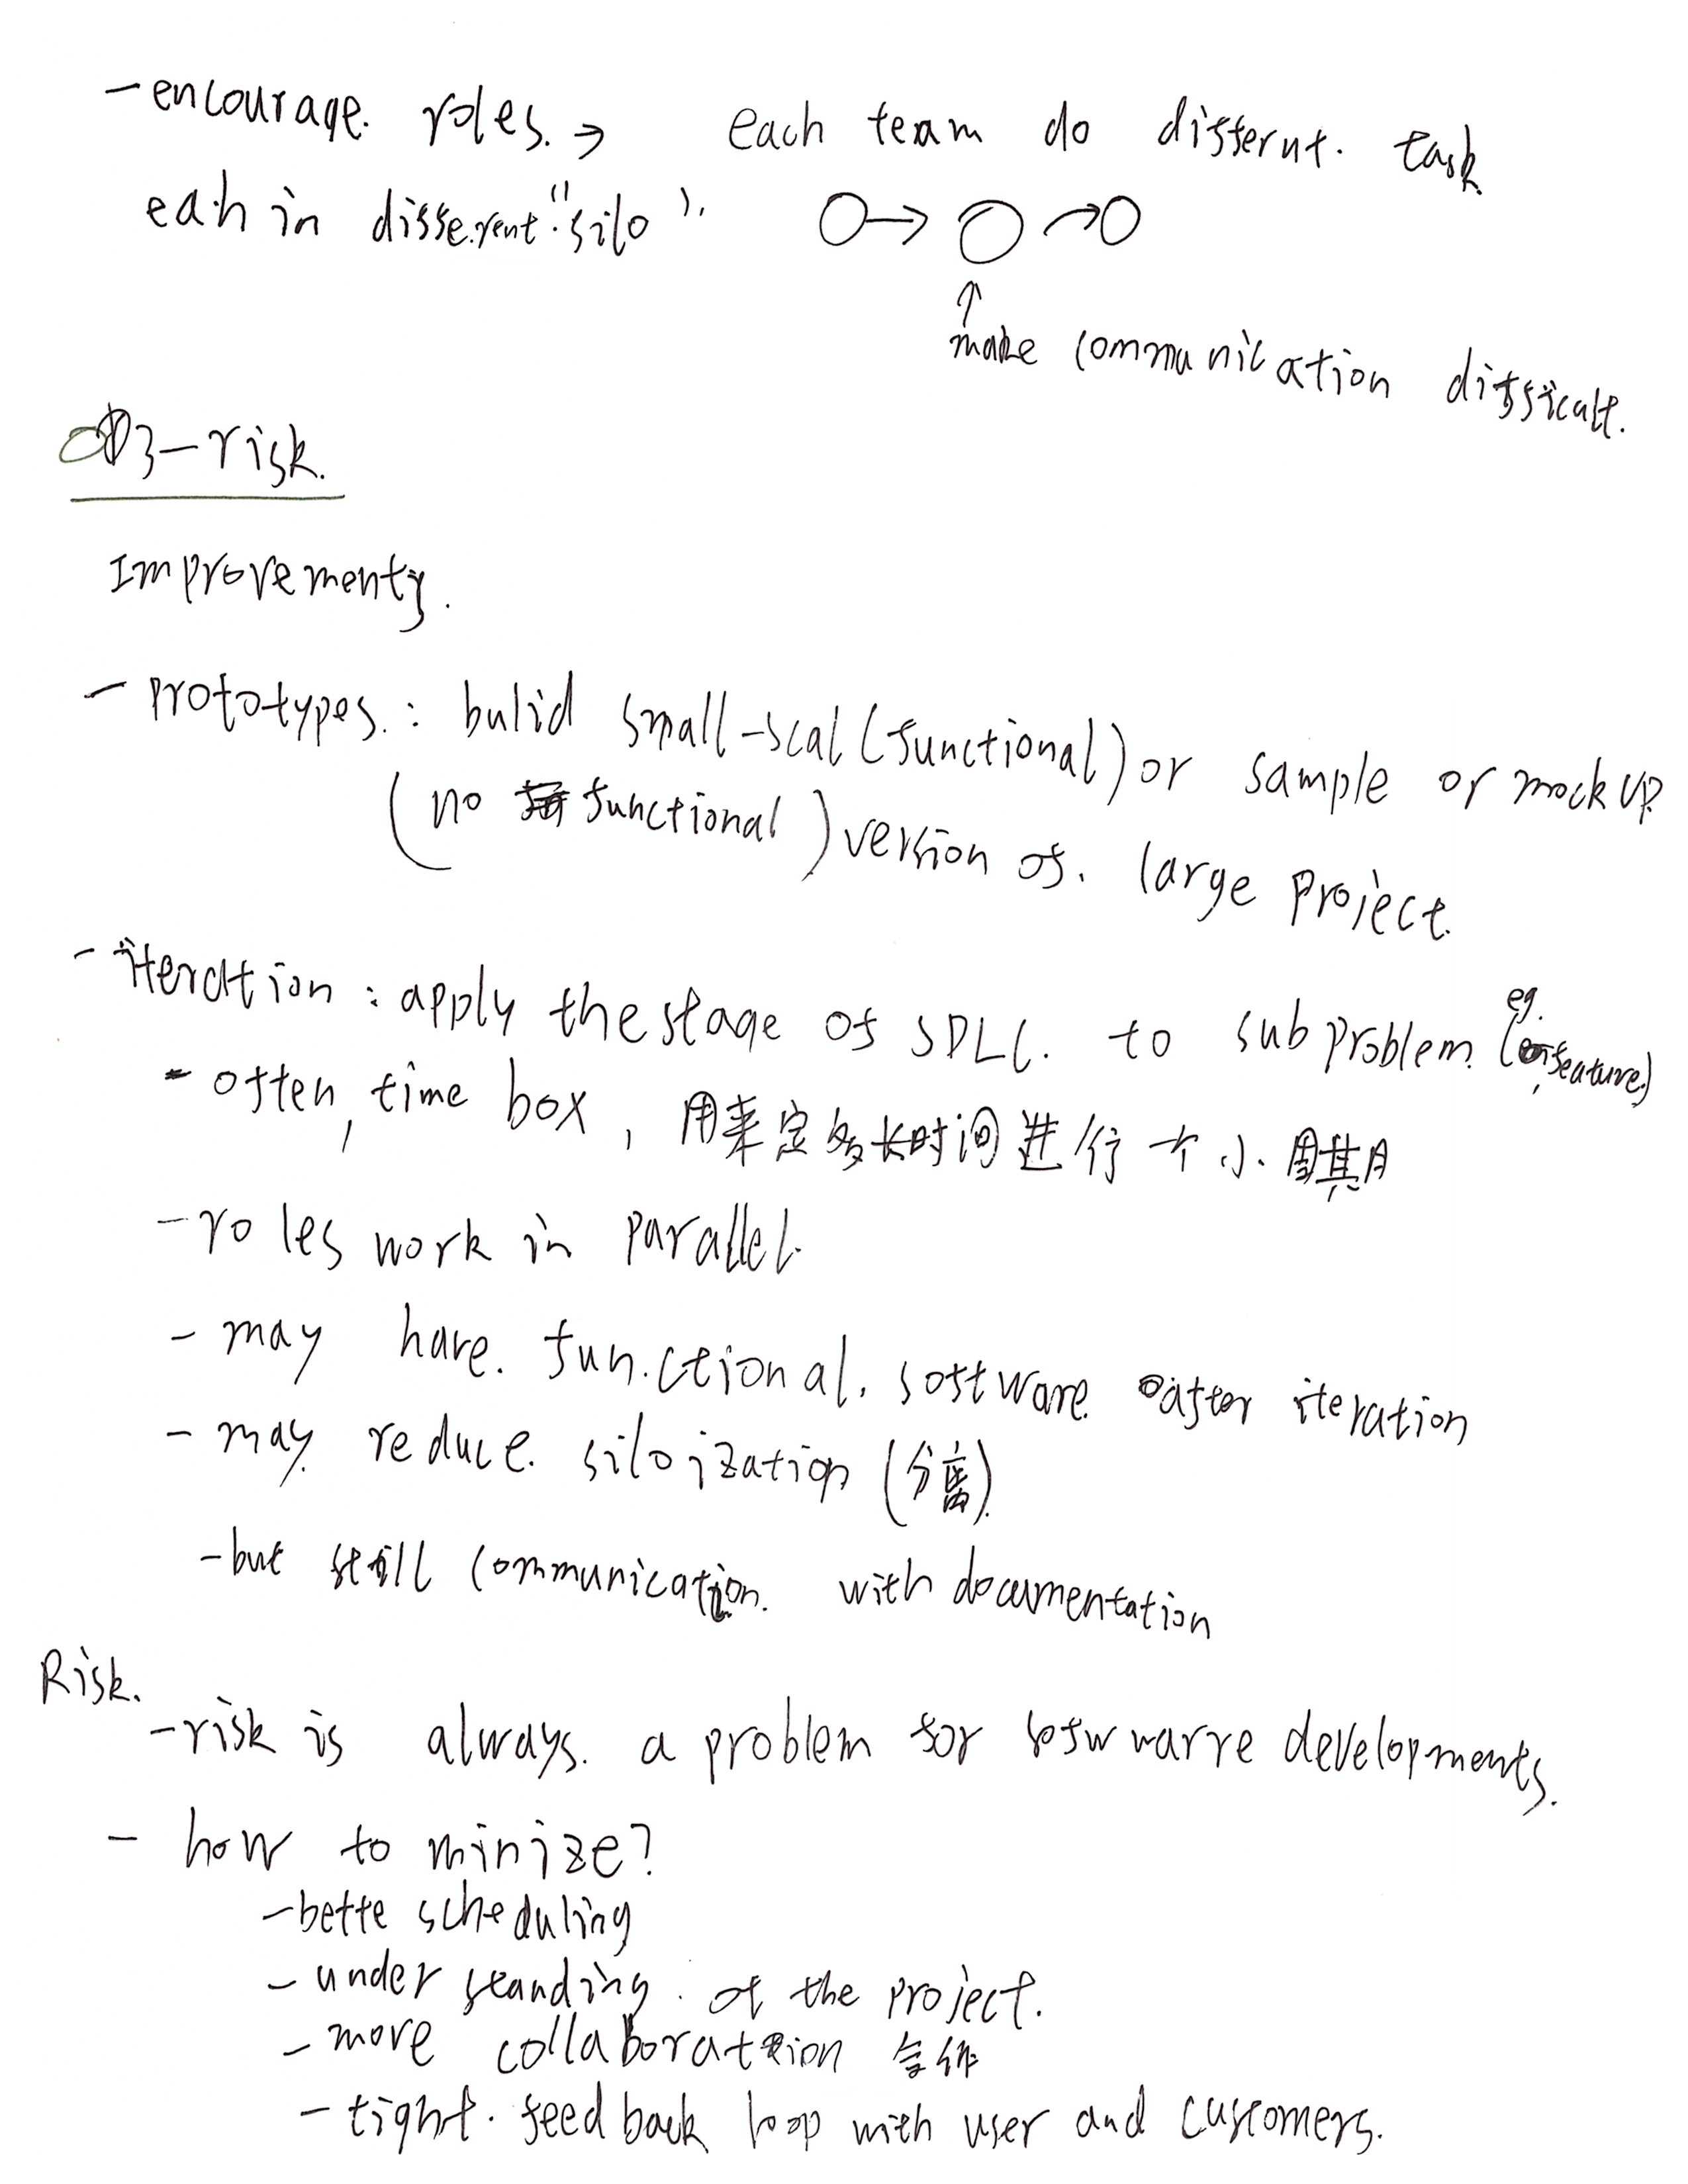 - encourage roles. → each team do differnt. task
eah in different "silo".
make communication difficult.
03 - risk.
Improvements.
- prototypes. : bulid small-scal (functional) or sample or mock up
(no functional) version of. large project.
- iteration : apply the stage of SDLC. to sub problem. (eg. feature)
- often, time box, 用来定多长时间进行一个小周期
- roles work in parallel.
- may have. functional. software after iteration
- may reduce. siloization (分离)
- but still communication. with documentation
Risk.
- risk is always. a problem for sofwwarre developments.
- how to minize?
- bette scheduling
- understanding. of the project.
- more collaboration 合作
- tight. feedback loop with user and customers.